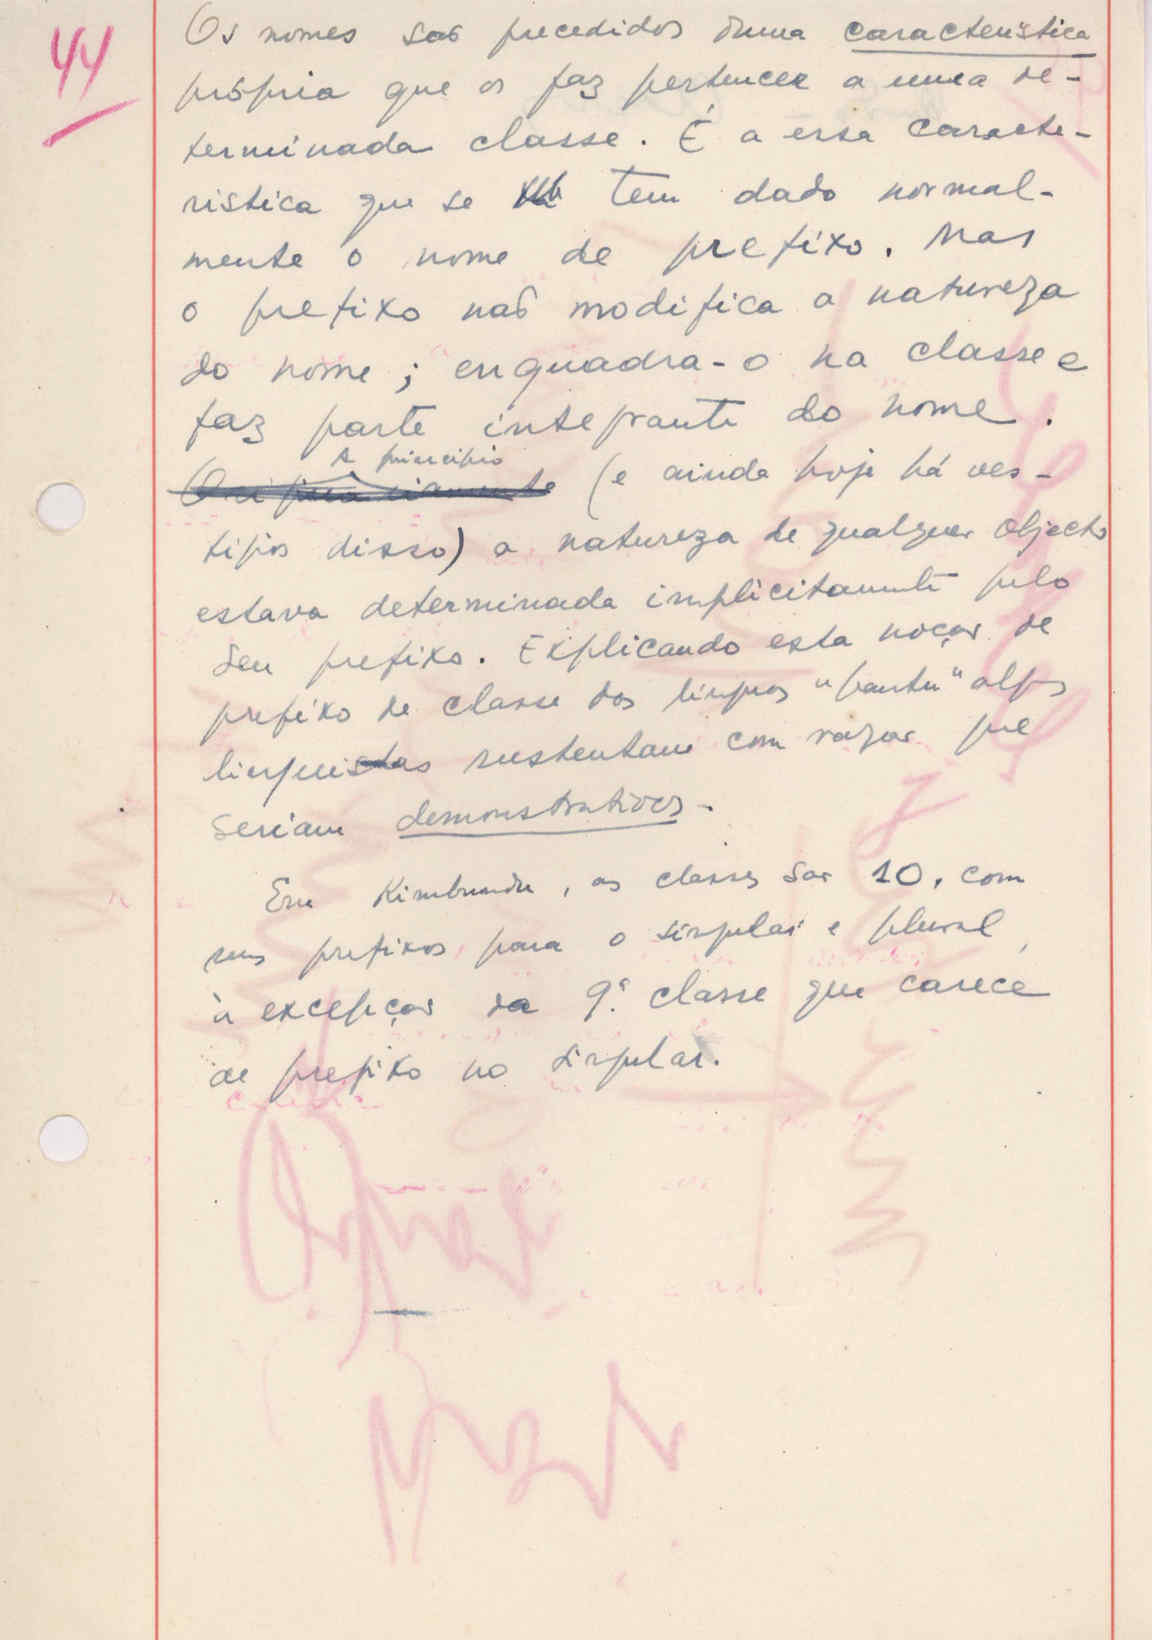 44
Os nomes são precedidos duma característica
própria que os faz pertencer a uma de-
terminada classe. É a essa caracte-
ristica que se tem dado normal-
mente o nome de prefixo. Mas
o prefixo não modifica a natureza
do nome; enquadra-o na classe e
faz parte integrante do nome.
A princípio
(e ainda hoje há ves-
tigios disso) a natureza de qualquer objecto
estava determinada implicitamente pelo
seu prefixo. Explicando esta noção de
prefixo de classe das linguas "bantu" alguns
linguistas sustentam com razão que
seriam demonstrativos.
Em Kimbundu, as classes são 10, com
seus prefixos para o singular e plural,
à excepção da 9ª classe que carece
de prefixo no singular.